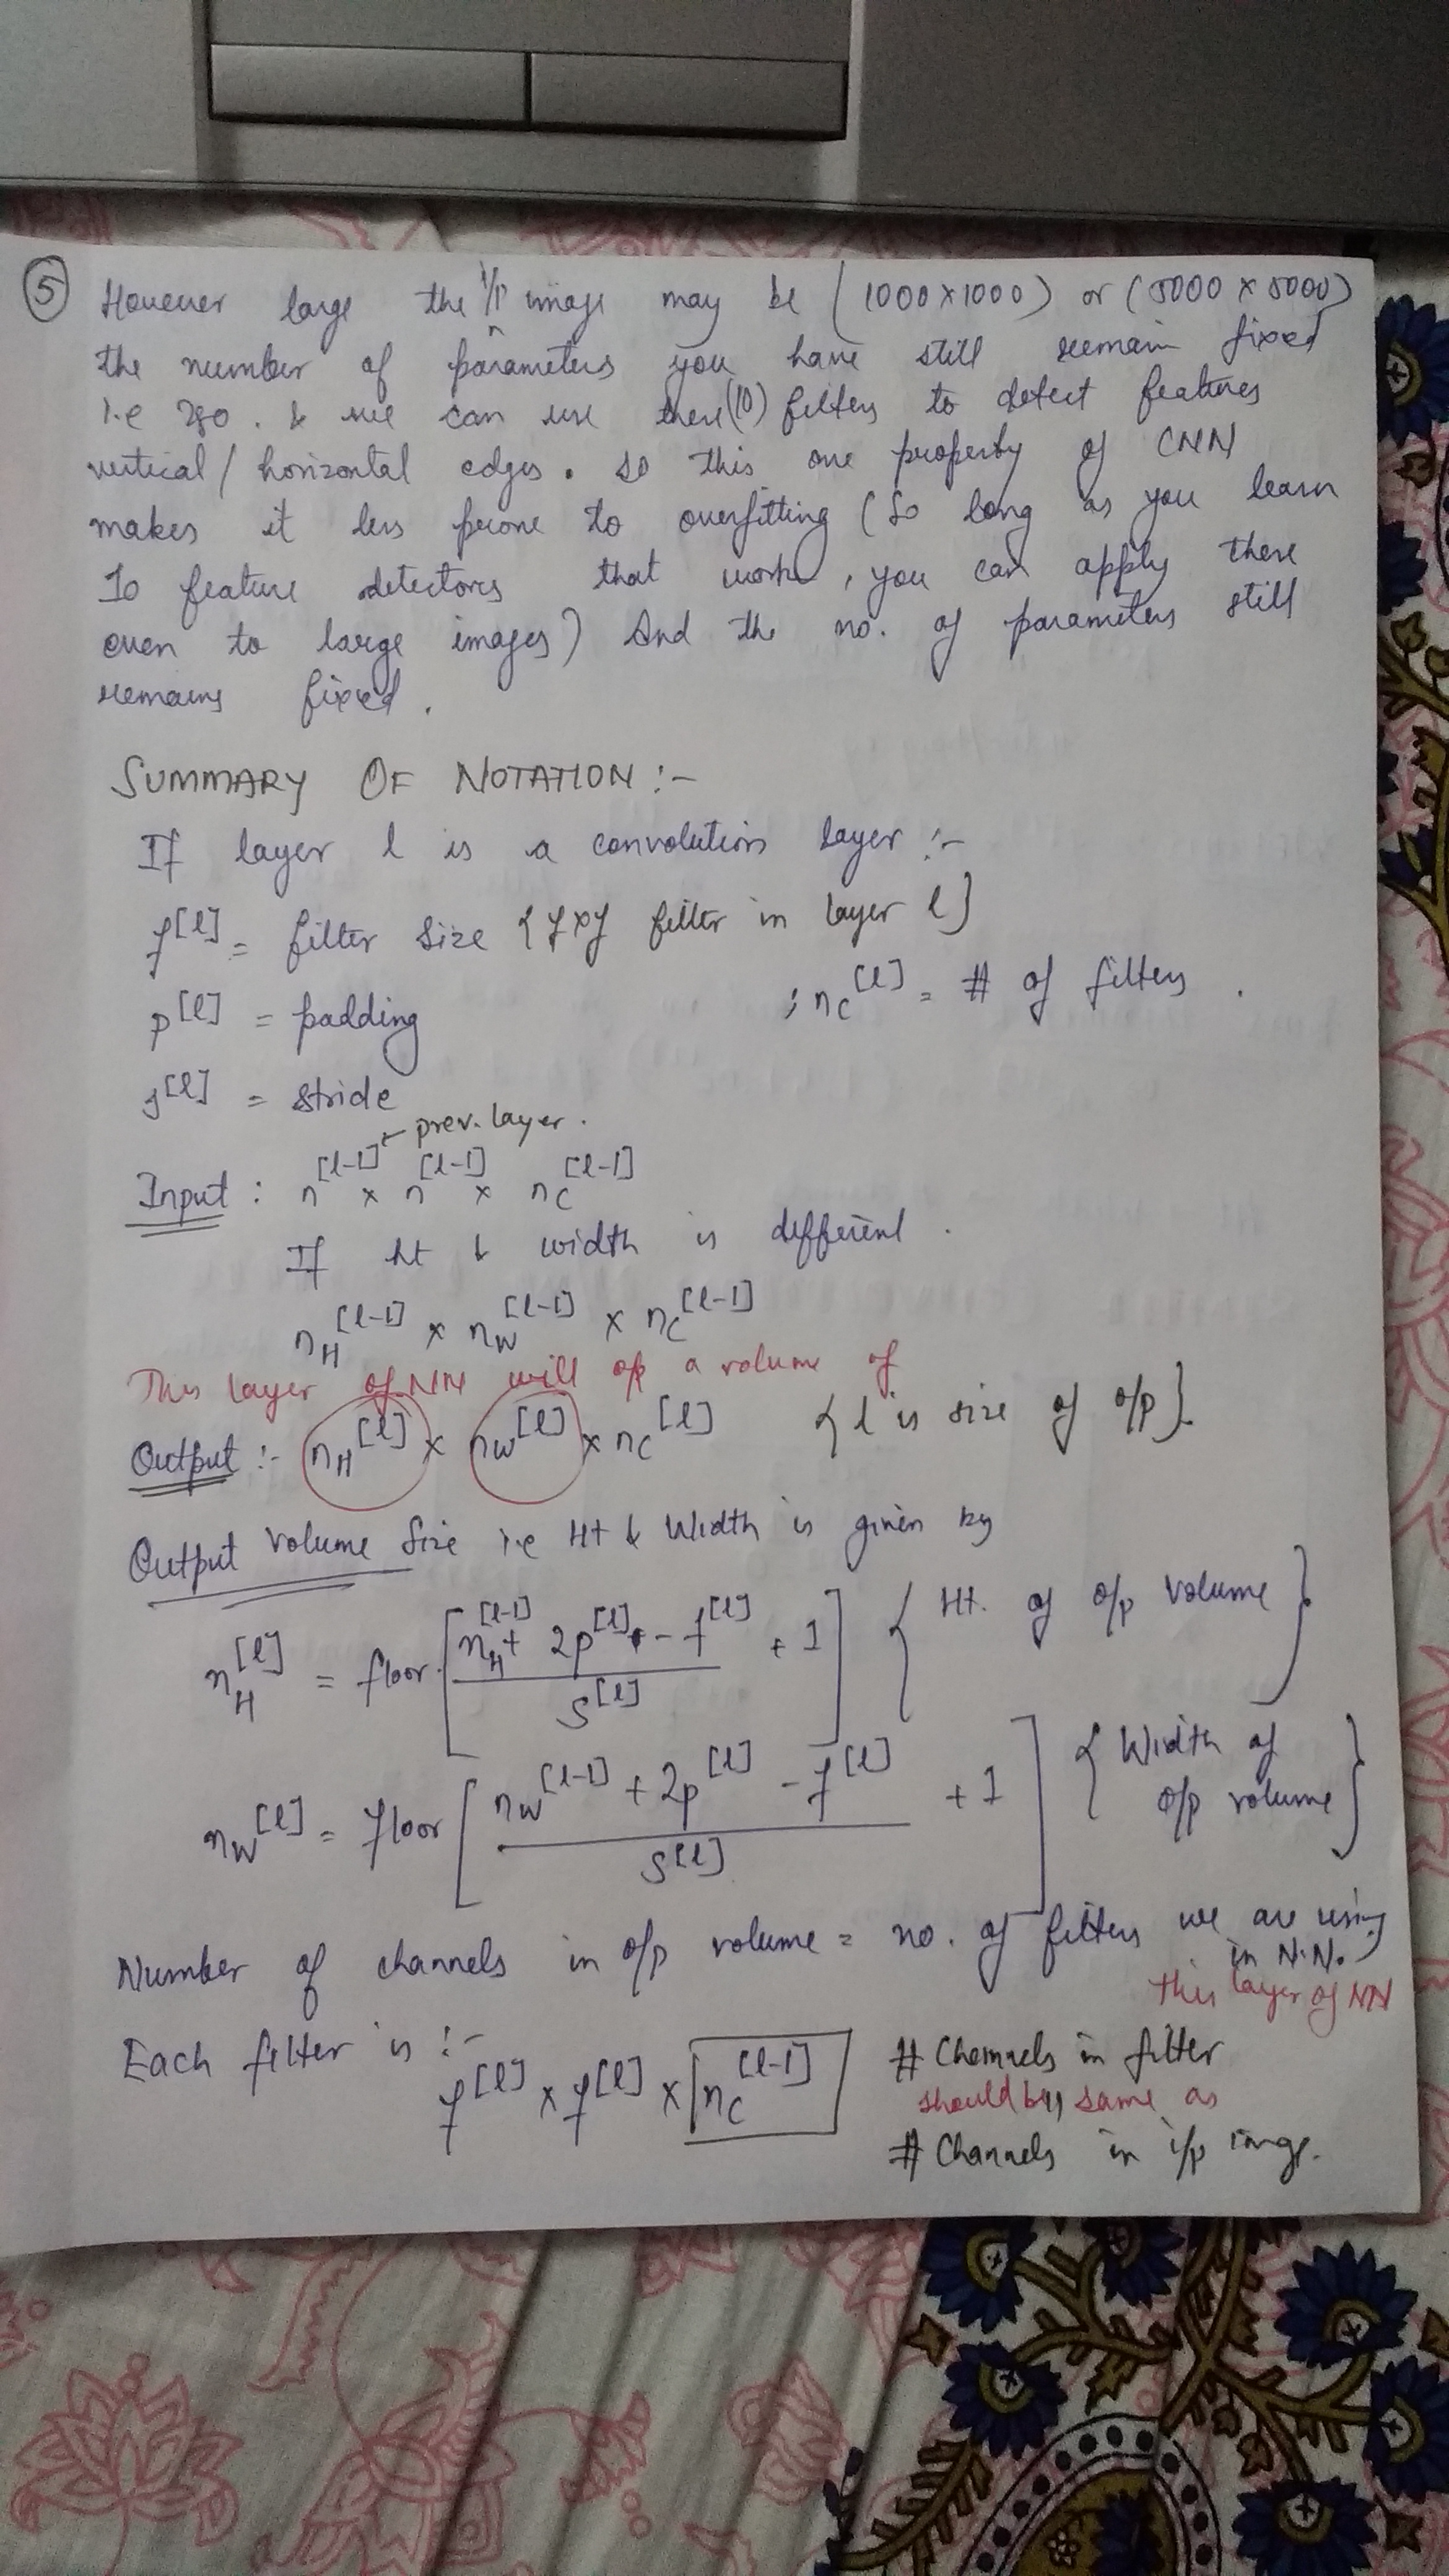 ⑤ However large the i/p image may be (1000×1000) or (5000×5000)
the number of parameters you have still remain fixed
i.e 280. & we can use these (10) filters to detect features
vertical/horizontal edges. So this one property of CNN
makes it less prone to overfitting (So long as you learn
10 feature detectors that works, you can apply these
even to large images) And the no. of parameters still
remains fixed.
SUMMARY OF NOTATION :-
If layer l is a convolution layer :-
f^[l] = filter size {f×f filter in layer l}
p^[l] = padding ; n_C^[l] = # of filters.
s^[l] = stride
← prev. layer.
Input : n^[l-1] × n^[l-1] × n_C^[l-1]
If ht & width is different.
n_H^[l-1] × n_W^[l-1] × n_C^[l-1]
This layer of NN will o/p a volume of
Output :- n_H^[l] × n_W^[l] × n_C^[l] {l is size of o/p}.
Output Volume Size i.e Ht & Width is given by
n_H^[l] = floor [(n_H^[l-1] + 2p^[l] - f^[l]) / s^[l] + 1] {Ht. of o/p volume}
n_W^[l] = floor [(n_W^[l-1] + 2p^[l] - f^[l]) / s^[l] + 1] {Width of
o/p volume}
Number of channels in o/p volume = no. of filters we are using
in N.N.
this layer of NN
Each filter is :-
f^[l] × f^[l] × n_C^[l-1]
# Channels in filter
should be same as
# Channels in i/p image.